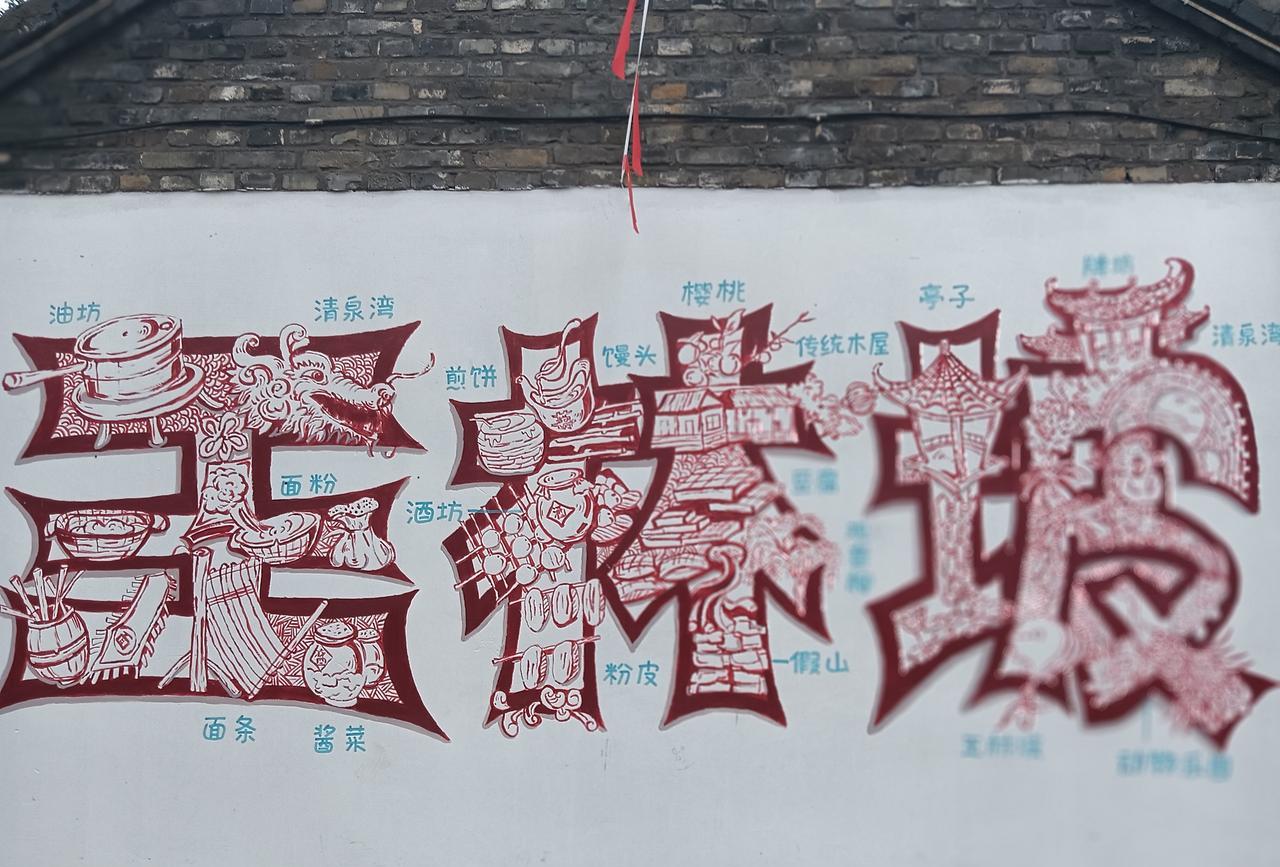 王林坞
油坊
清泉湾
面粉
面条
酱菜
煎饼
馒头
樱桃
传统木屋
酒坊
豆腐
粉皮
假山
亭子
牌坊
清泉湾